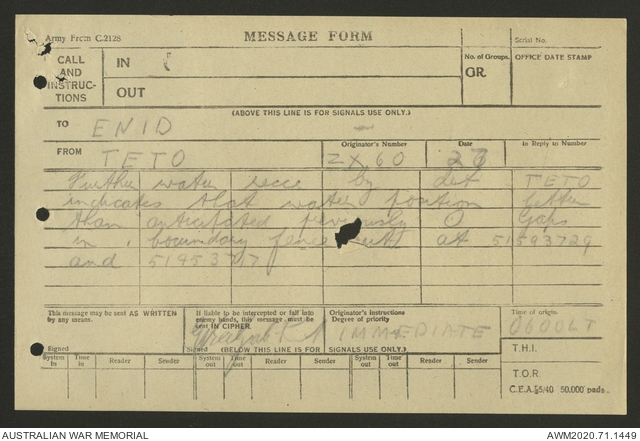 Army From C.2128
MESSAGE FORM
Serial No.
CALL AND INSTRUC-TIONS
IN
OUT
No. of Groups.
GR.
OFFICE DATE STAMP
(ABOVE THIS LINE IS FOR SIGNALS USE ONLY.)
TO ENID
FROM TETO
Originator's Number ZX60
Date 23
In Reply to Number
Further water recce by det TETO
indicates that water position better
than anticipated previously O Gaps
in boundary fence at 51593729
and
This message may be sent AS WRITTEN by any means.
Signed
If liable to be intercepted or fall into enemy hands, this message must be sent IN CIPHER.
Signed
Originator's instructions
Degree of priority
IMMEDIATE
Time of origin.
0600LT
(BELOW THIS LINE IS FOR SIGNALS USE ONLY.)
T.H.I.
System in
Time in
Reader
Sender
System out
Time out
Reader
Sender
System out
Time out
Reader
Sender
T.O.R.
C.E.A. 5/40 50,000 pads.
AUSTRALIAN WAR MEMORIAL
AWM2020.71.1449